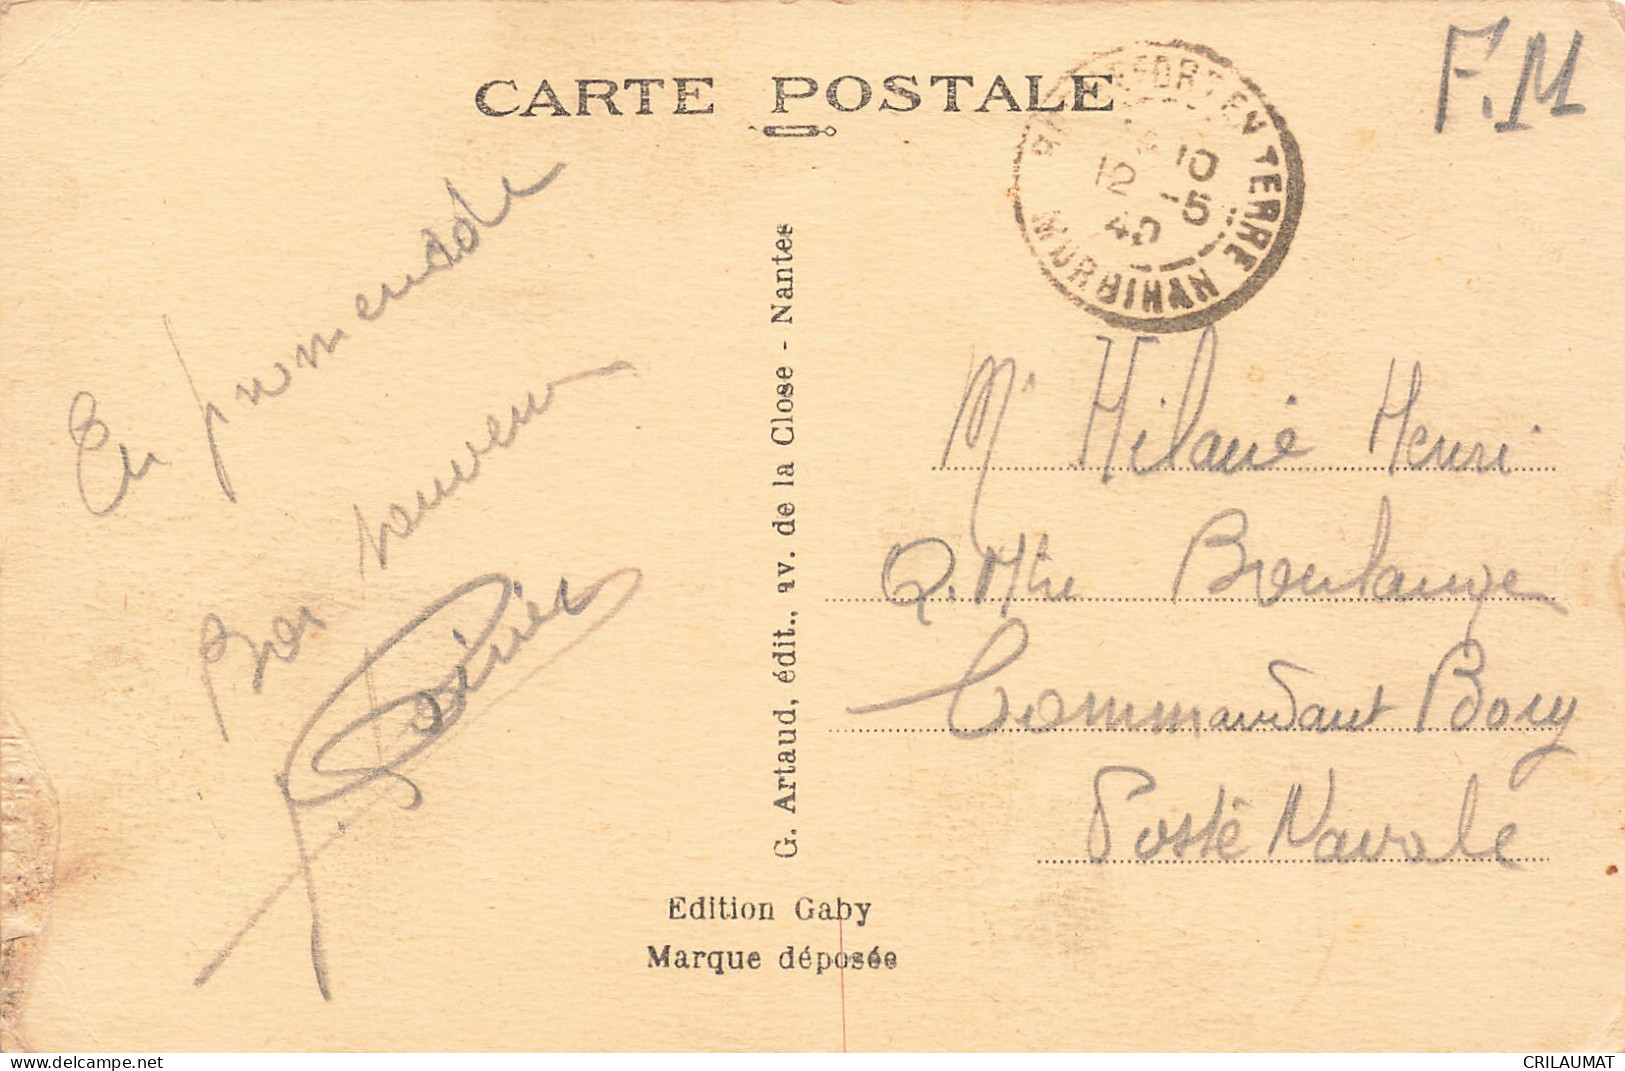 CARTE POSTALE
F.M
ROCHEFORT EN TERRE
10
12 -5
40
MORBIHAN
En promenade
Bon souvenir
G. Artaud, édit., av. de la Close - Nantes
Mr Hilarie Henri
Q. Mtre Boulanger
Commandant Bory
Poste Navale
Edition Gaby
Marque déposée
delcampe.net
CRILAUMAT